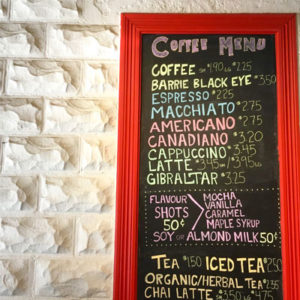 COFFEE MENU
COFFEE SM $1.90 LG $2.25
BARRIE BLACK EYE $3.50
ESPRESSO $2.25
MACCHIATO $2.75
AMERICANO $2.75
CANADIANO $3.20
CAPPUCCINO $3.45
LATTE $3.45 SM / $3.95 LG
GIBRALTAR $3.25
FLAVOUR SHOTS 50¢
MOCHA
VANILLA
CARAMEL
MAPLE SYRUP
SOY OR ALMOND MILK 50¢
TEA $1.50 ICED TEA $2.50
ORGANIC/HERBAL TEA
CHAI LATTE